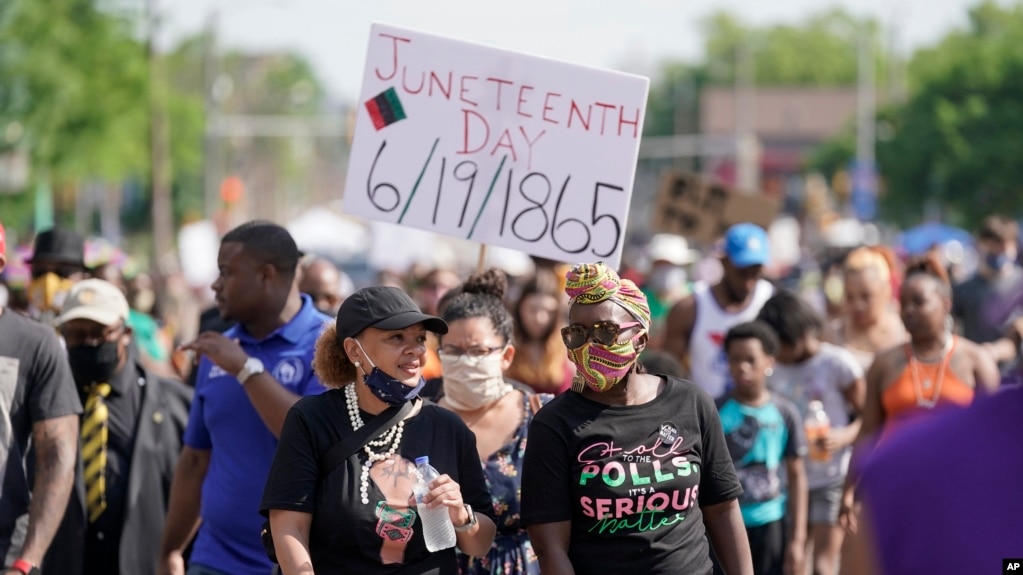 JUNETEENTH
DAY
6/19/1865
Stroll
TO THE
POLLS,
IT'S A
SERIOUS
Matter
AP